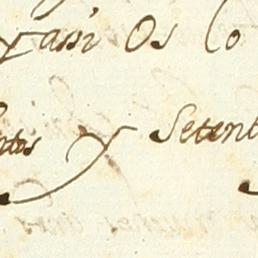 y assi Os lo
ntos y Setent